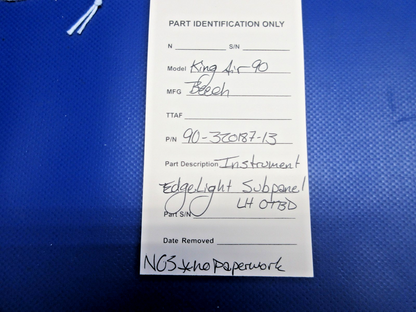 PART IDENTIFICATION ONLY
N S/N
Model King Air-90
MFG Beech
TTAF
P/N 90-320187-13
Part Description Instrument
EdgeLight Subpanel
LH OTBD
Part S/N
Date Removed
no paperwork